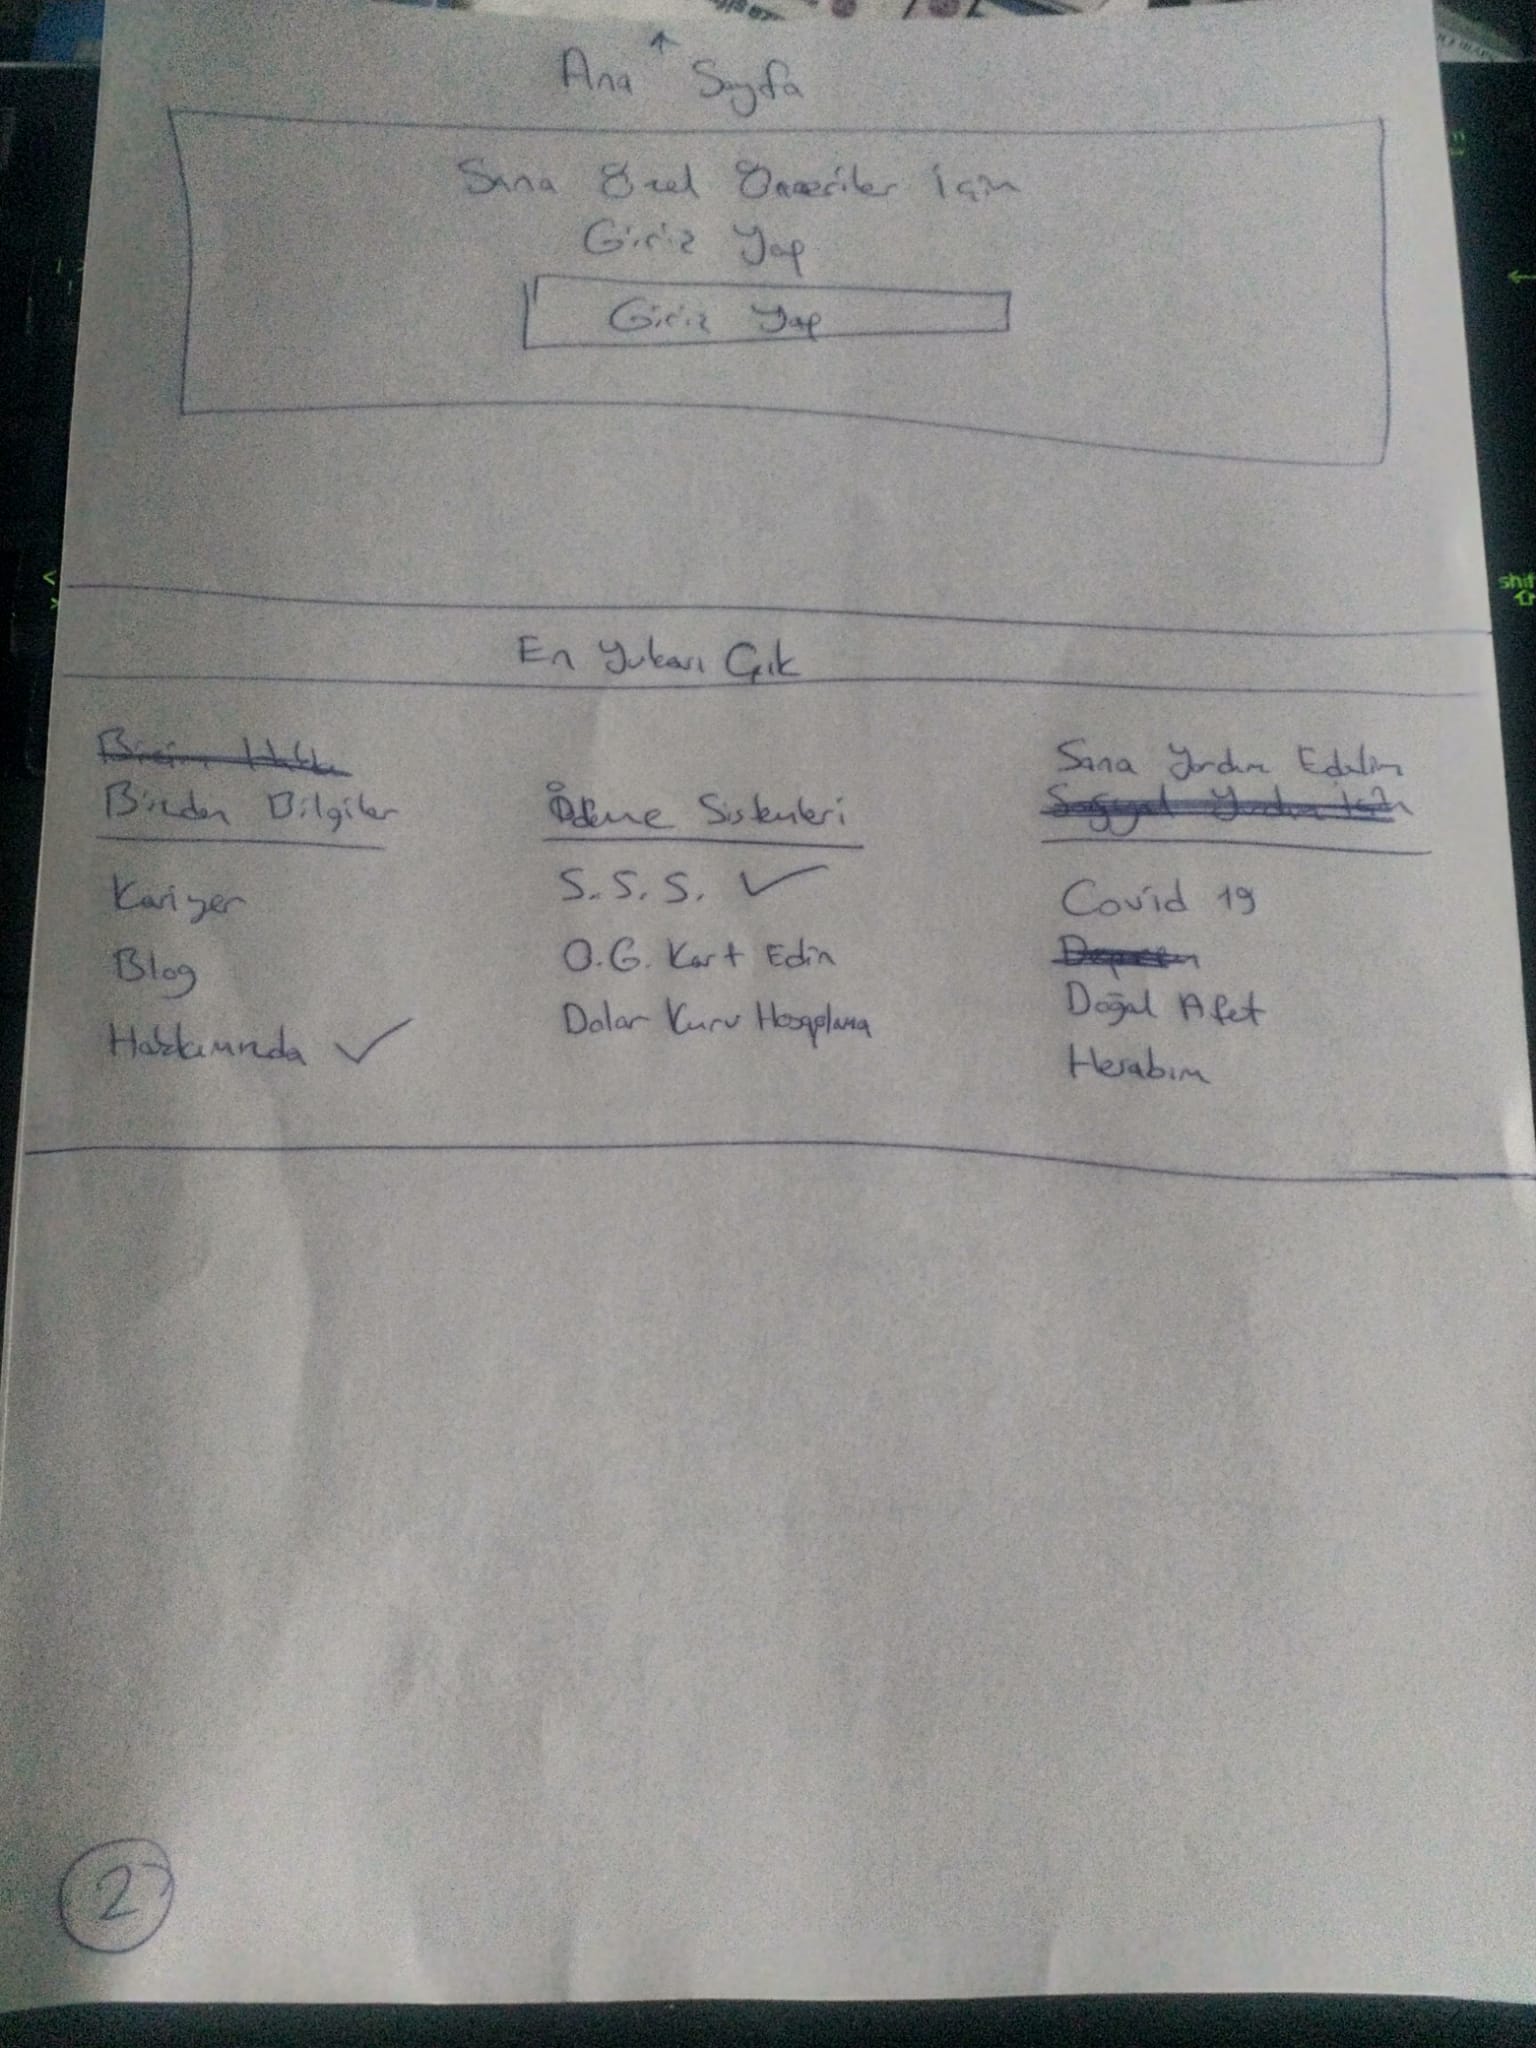 Ana Sayfa
Sana Özel Öneriler İçin
Giriş Yap
Giriş Yap
En Yukarı Çık
Bizden Bilgiler
Kariyer
Blog
Hakkımızda ✓
Ödeme Sistemleri
S.S.S. ✓
O.G. Kart Edin
Dolar Kuru Hesaplama
Sana Yardım Edelim
Covid 19
Doğal Afet
Hesabım
2
shift